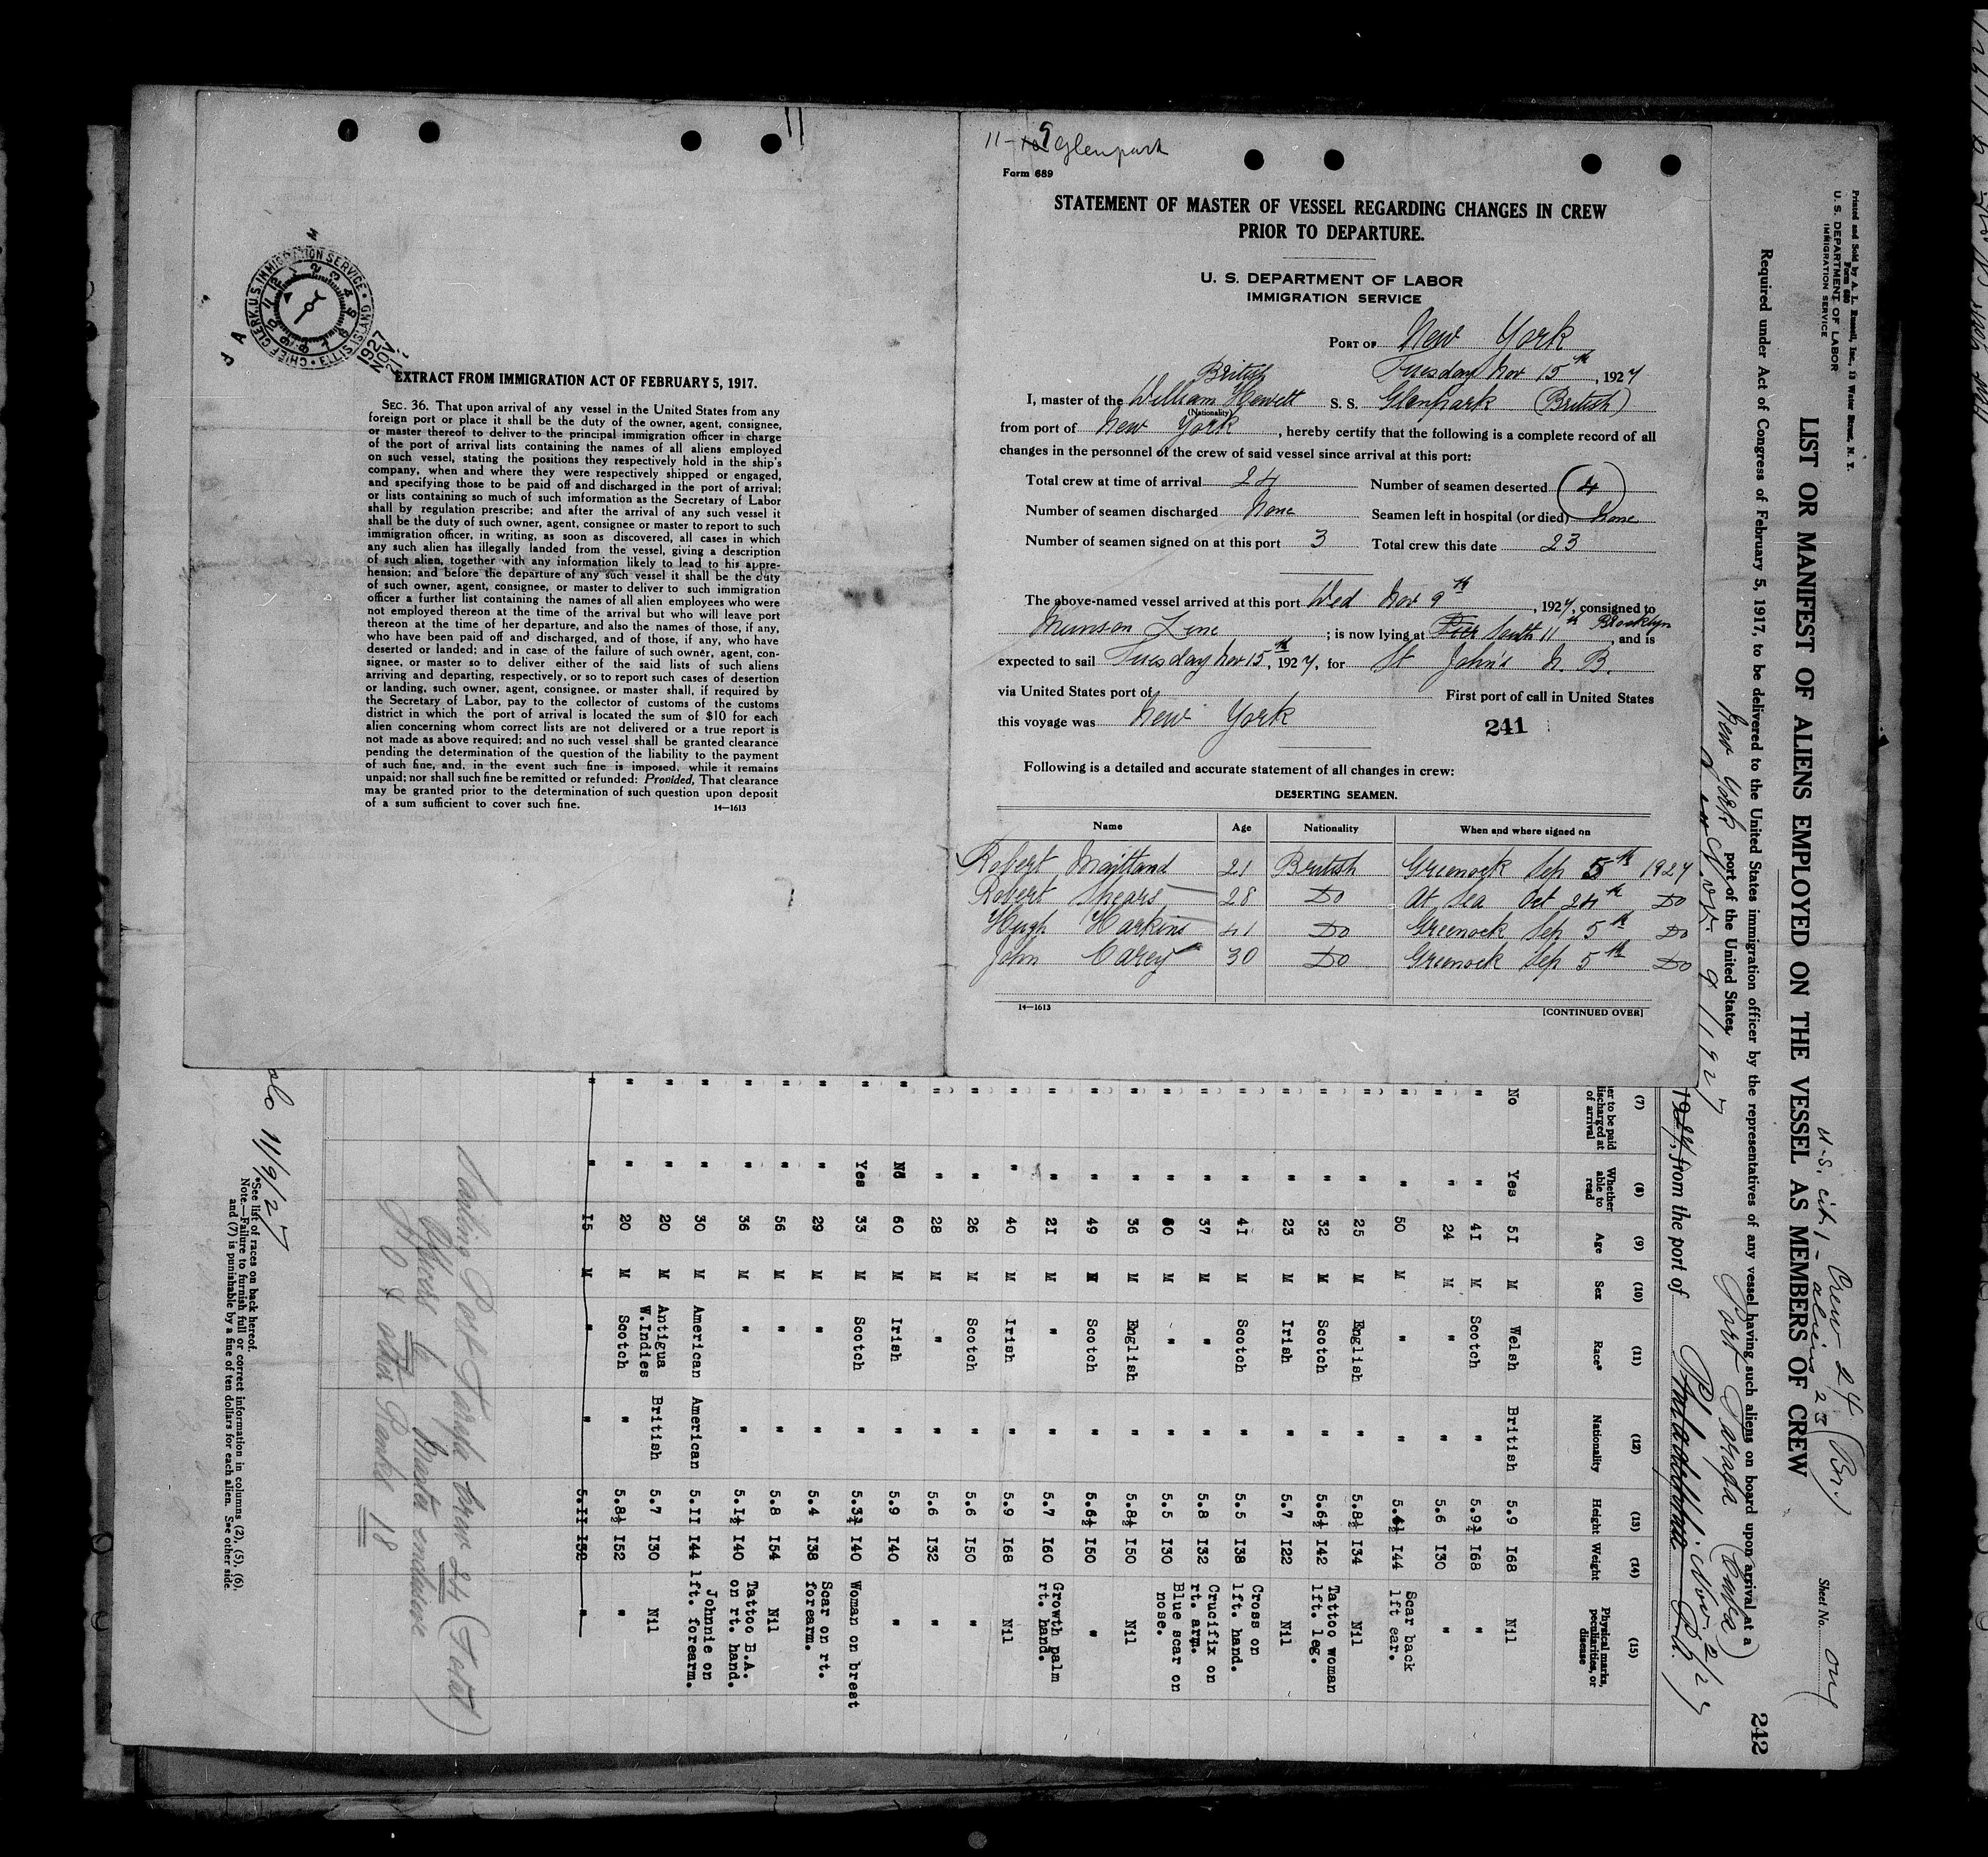 11-9 Glenpark
Form 689
STATEMENT OF MASTER OF VESSEL REGARDING CHANGES IN CREW
PRIOR TO DEPARTURE.
U. S. DEPARTMENT OF LABOR
IMMIGRATION SERVICE
PORT OF New York
Tuesday Nov 15th, 1927
British
I, master of the William Hewett S. S. Glenpark (British)
(Nationality)
from port of New York, hereby certify that the following is a complete record of all
changes in the personnel of the crew of said vessel since arrival at this port:
Total crew at time of arrival 24 Number of seamen deserted 4
Number of seamen discharged None Seamen left in hospital (or died) None
Number of seamen signed on at this port 3 Total crew this date 23
The above-named vessel arrived at this port Wed Nov 9th, 1927, consigned to
Munson Line; is now lying at Pier South 11th Brooklyn, and is
expected to sail Tuesday Nov 15th, 1927, for St John's N. B.
via United States port of First port of call in United States
this voyage was New York 241
Following is a detailed and accurate statement of all changes in crew:
DESERTING SEAMEN.
Name Age Nationality When and where signed on
Robert Maitland 21 British Greenock Sep 5th 1927
Robert Shears 28 Do At Sea Oct 24th Do
Hugh Harkins 41 Do Greenock Sep 5th Do
John Carey 30 Do Greenock Sep 5th Do
14—1613 [CONTINUED OVER]
11
CHIEF CLERK, U.S. IMMIGRATION SERVICE • ELLIS ISLAND
1927 NOV
EXTRACT FROM IMMIGRATION ACT OF FEBRUARY 5, 1917.
SEC. 36. That upon arrival of any vessel in the United States from any
foreign port or place it shall be the duty of the owner, agent, consignee,
or master thereof to deliver to the principal immigration officer in charge
of the port of arrival lists containing the names of all aliens employed
on such vessel, stating the positions they respectively hold in the ship's
company, when and where they were respectively shipped or engaged,
and specifying those to be paid off and discharged in the port of arrival;
or lists containing so much of such imformation as the Secretary of Labor
shall by regulation prescribe; and after the arrival of any such vessel it
shall be the duty of such owner, agent, consignee or master to report to such
immigration officer, in writing, as soon as discovered, all cases in which
any such alien has illegally landed from the vessel, giving a description
of such alien, together with any information likely to lead to his appre-
hension; and before the departure of any such vessel it shall be the duty
of such owner, agent, consignee, or master to deliver to such immigration
officer a further list containing the names of all alien employees who were
not employed thereon at the time of the arrival but who will leave port
thereon at the time of her departure, and also the names of those, if any,
who have been paid off and discharged, and of those, if any, who have
deserted or landed; and in case of the failure of such owner, agent, con-
signee, or master so to deliver either of the said lists of such aliens
arriving and departing, respectively, or so to report such cases of desertion
or landing, such owner, agent, consignee, or master shall, if required by
the Secretary of Labor, pay to the collector of customs of the customs
district in which the port of arrival is located the sum of $10 for each
alien concerning whom correct lists are not delivered or a true report is
not made as above required; and no such vessel shall be granted clearance
pending the determination of the question of the liability to the payment
of such fine, and, in the event such fine is imposed, while it remains
unpaid; nor shall such fine be remitted or refunded: Provided, That clearance
may be granted prior to the determination of such question upon deposit
of a sum sufficient to cover such fine. 14—1613
Printed and Sold by A. L. Russell, Inc., 13 Water Street, N. Y.
Form 680
U. S. DEPARTMENT OF LABOR
IMMIGRATION SERVICE
Crew 24 (Br.)
U.S. cit. 1 - aliens 23
Sheet No. One
LIST OR MANIFEST OF ALIENS EMPLOYED ON THE VESSEL AS MEMBERS OF CREW
242
Required under Act of Congress of February 5, 1917, to be delivered to the United States immigration officer by the representatives of any vessel having such aliens on board upon arrival at a
port of the United States
New York Nov. 9 1927
Port Tarafa (Cuba)
1927, from the port of Philadelphia Pa.
Phil. Nov. 2/27
(7) (8) (9) (10) (11) (12) (13) (14) (15)
er to be paid discharged at of arrival Whether able to read Age Sex Race* Nationality Height Weight Physical marks, peculiarities, or disease
No Yes 51 M Welsh British 5.9 168 Nil
" " 41 M Scotch " 5.9¾ 168 "
" " 24 M " " 5.6 130 "
" " 50 M " " 5.4½ 144 Scar back lft ear.
" " 25 M English " 5.8½ 134 Nil
" " 32 M Scotch " 5.6½ 142 Tattoo woman lft. leg.
" " 23 M Irish " 5.7 122 Nil
" " 41 M Scotch " 5.5 138 Cross on lft. hand.
" " 37 M " " 5.8 132 Crucifix on rt. arm.
" " 60 M " " 5.5 130 Blue scar on nose.
" " 36 M English " 5.8½ 150 Nil
" " 49 M Scotch " 5.6½ 150 "
" " 21 M " " 5.7 160 Growth palm rt. hand.
" " 40 M Irish " 5.9 168 Nil
" " 26 M Scotch " 5.6 150 "
" " 28 M " " 5.6 132 "
" No 60 M Irish " 5.9 140 "
" Yes 33 M Scotch " 5.3¾ 140 Woman on brest
" " 29 M " " 5.4 138 Scar on rt. forearm.
" " 56 M " " 5.8 154 Nil
" " 36 M " " 5.1½ 140 Tattoo B.A. on rt. hand.
" " 30 M American American 5.11 144 Johnnie on lft. forearm.
" " 20 M Antigua W.Indies British 5.7 130 Nil
" " 20 M Scotch " 5.8½ 152 "
" " 15 M " " 5.11 132 "
Sailing Port Tarafa Crew 24 (Total)
Officers 6 Master inclusive
P.O & other Ranks 18
11/9/27
*See list of races on back hereof.
Note.—Failure to furnish full or correct information in columns (2), (5), (6),
and (7) is punishable by a fine of ten dollars for each alien. See other side.